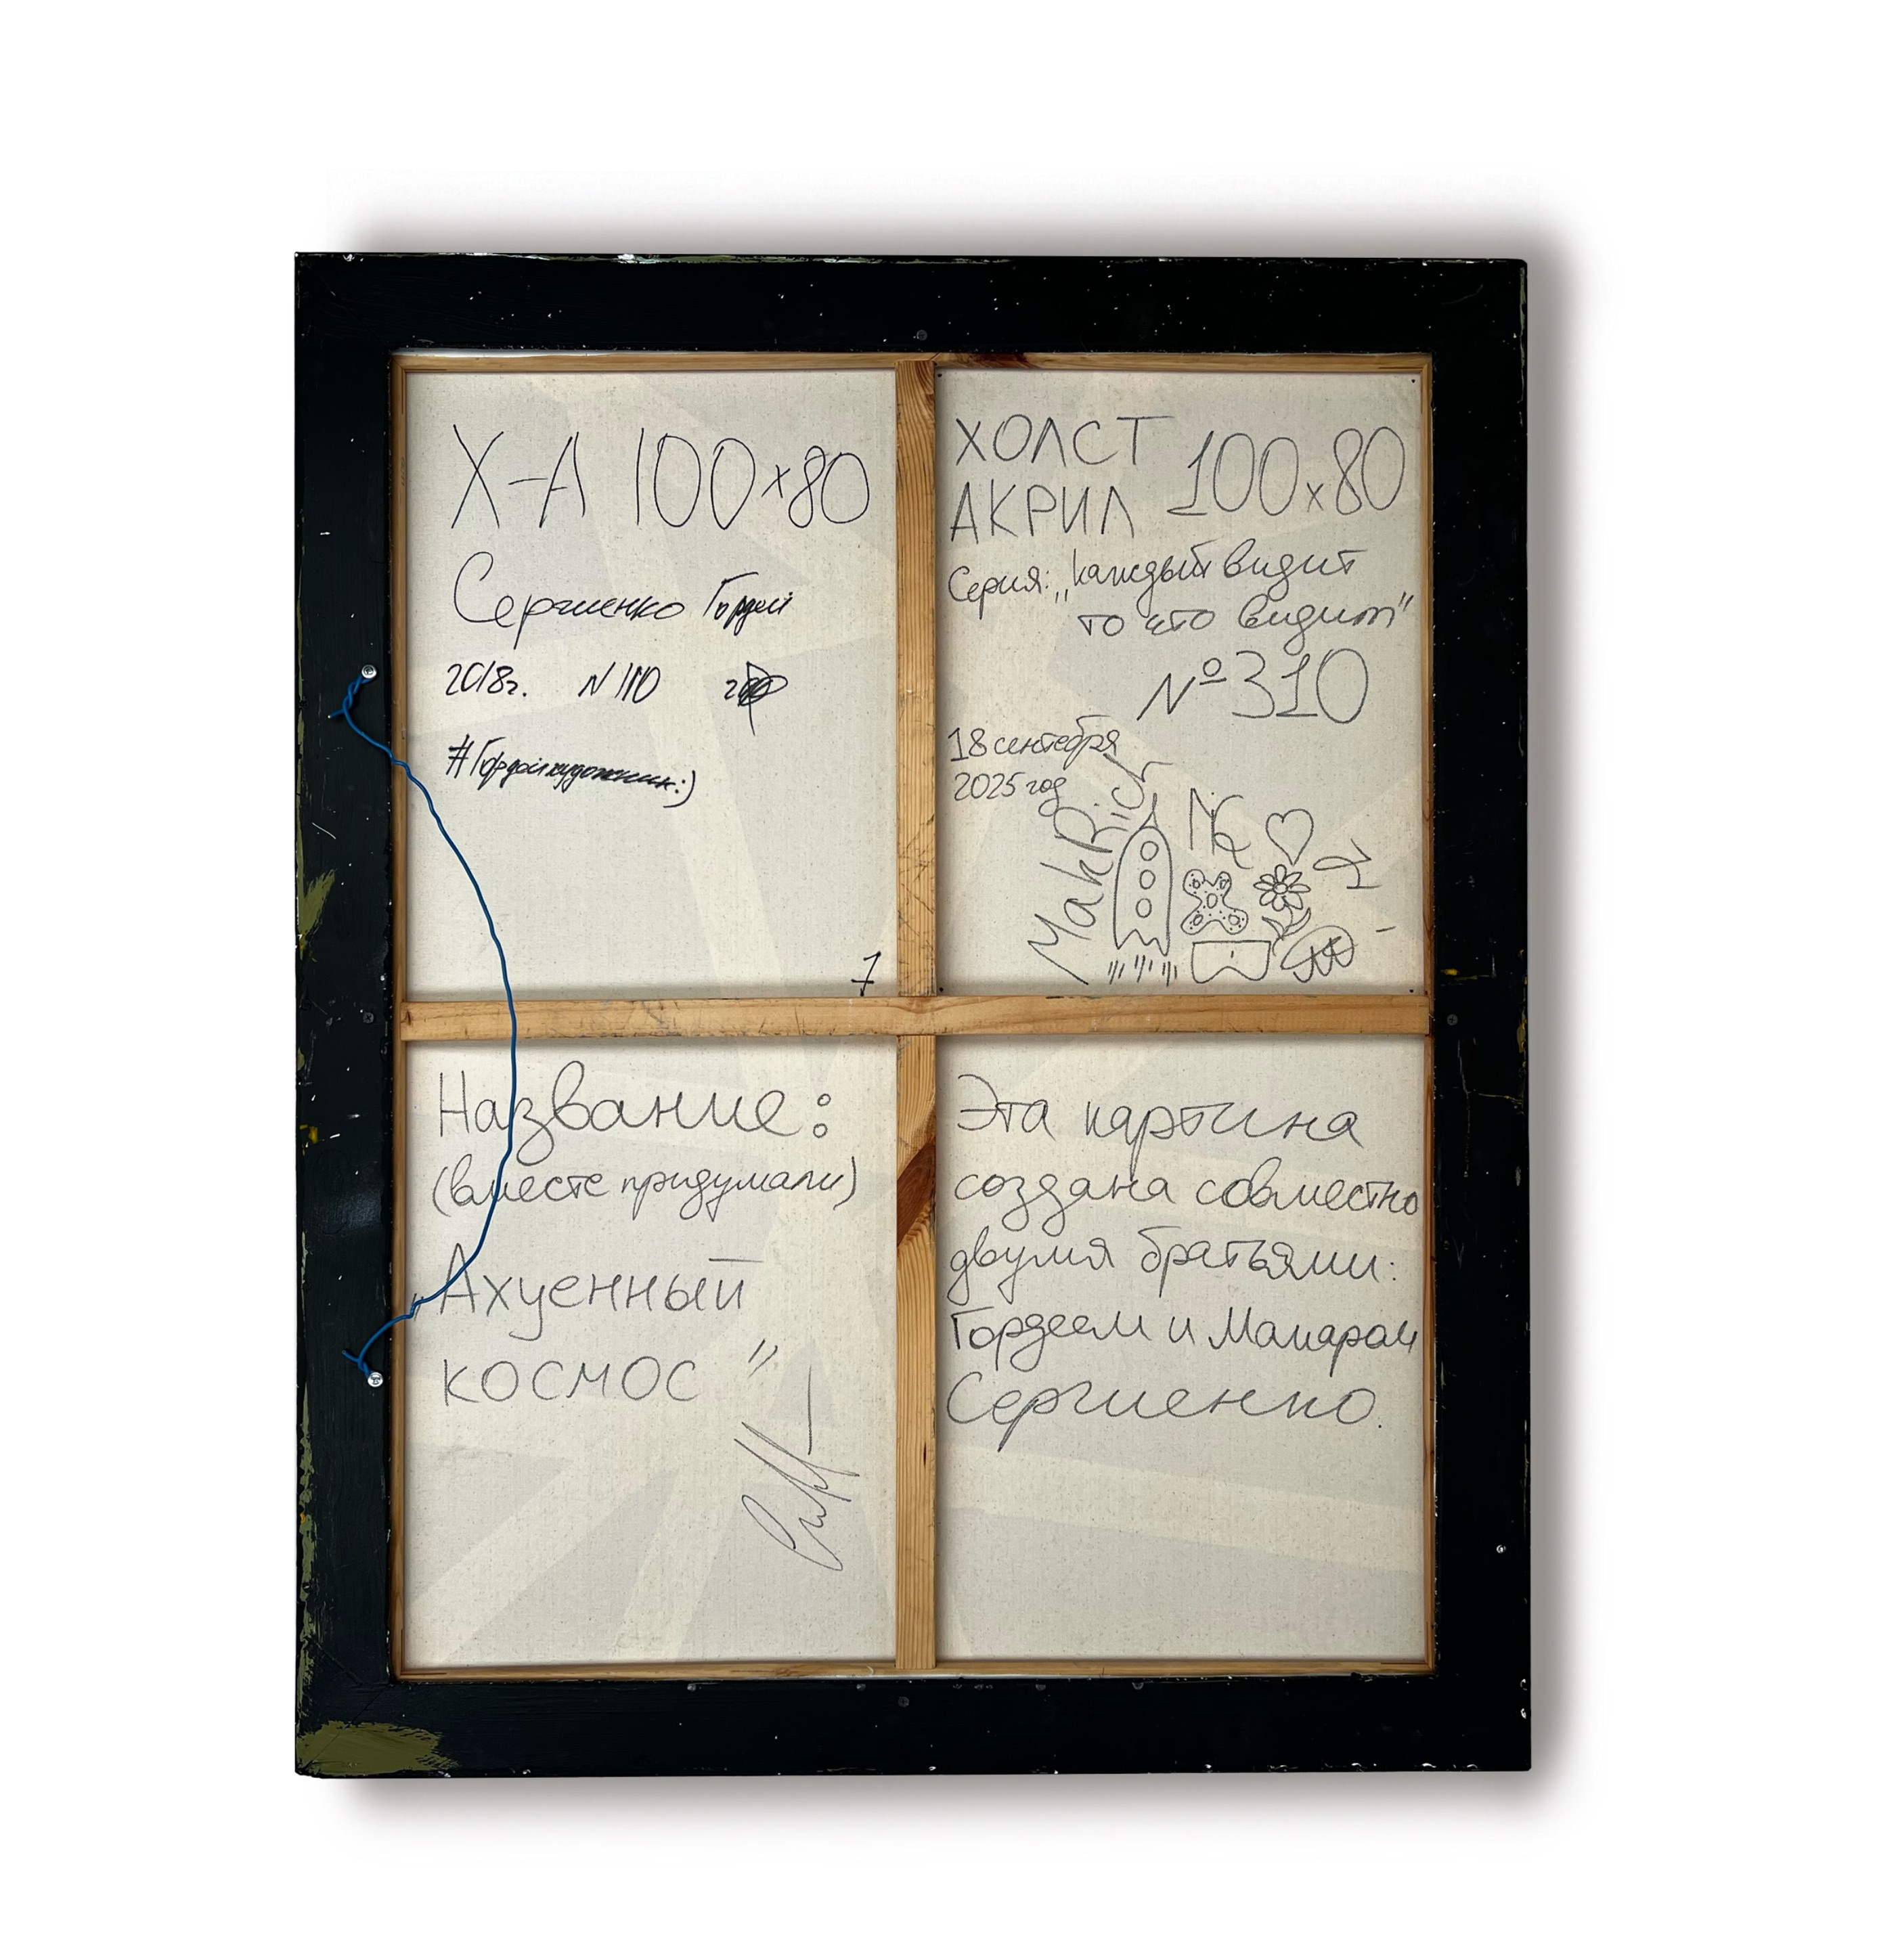 Х-А 100х80
Сергиенко Гордей
2018г. N 110
#Гордейхудожник:)
1
ХОЛСТ
АКРИЛ 100х80
Серия: „каждый видит
то что видит"
№310
18 сентября
2025 год
MakRich
Название:
(вместе придумали)
„Ахуенный
космос"
Эта картина
создана совместно
двумя братьями:
Гордеем и Макаром
Сергиенко.